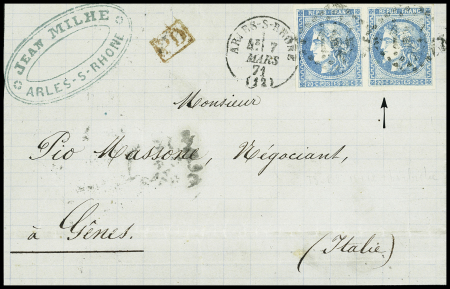 JEAN MILHE
ARLES-S-RHONE
PD
ARLES-S-RHONE
7
MARS
71
(12)
REPUB. FRANC.
20 C. POSTES 20 C.
REPUB. FRANC.
20 C. POSTES 20 C.
Monsieur
Pio Massone, Négociant,
à Gênes.
(Italie)